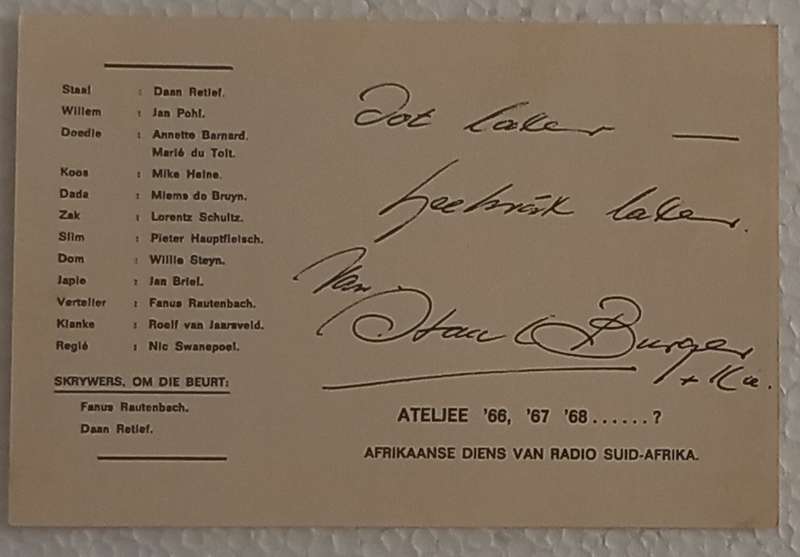 Staal : Daan Retief.
Willem : Jan Pohl.
Doedie : Annette Barnard.
Marié du Toit.
Koos : Mike Heine.
Dada : Miems de Bruyn.
Zak : Lorentz Schultz.
Slim : Pieter Hauptfleisch.
Dom : Willie Steyn.
Japie : Jan Briel.
Verteller : Fanus Rautenbach.
Klanke : Roelf van Jaarsveld.
Regié : Nic Swanepoel.
SKRYWERS, OM DIE BEURT:
Fanus Rautenbach.
Daan Retief.
Tot later —
later.
Van
Staal Burger
+ Kie.
ATELJEE '66, '67 '68......?
AFRIKAANSE DIENS VAN RADIO SUID-AFRIKA.